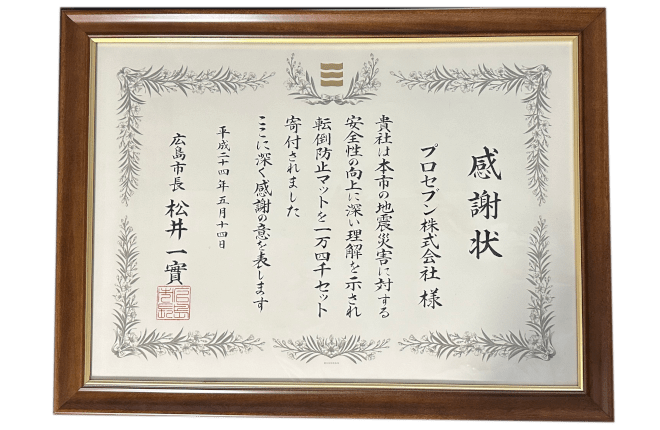 感謝状
プロセブン株式会社 様
貴社は本市の地震災害に対する
安全性の向上に深い理解を示され
転倒防止マットを一万四千セット
寄付されました
ここに深く感謝の意を表します
平成二十四年五月十四日
広島市長 松井一實